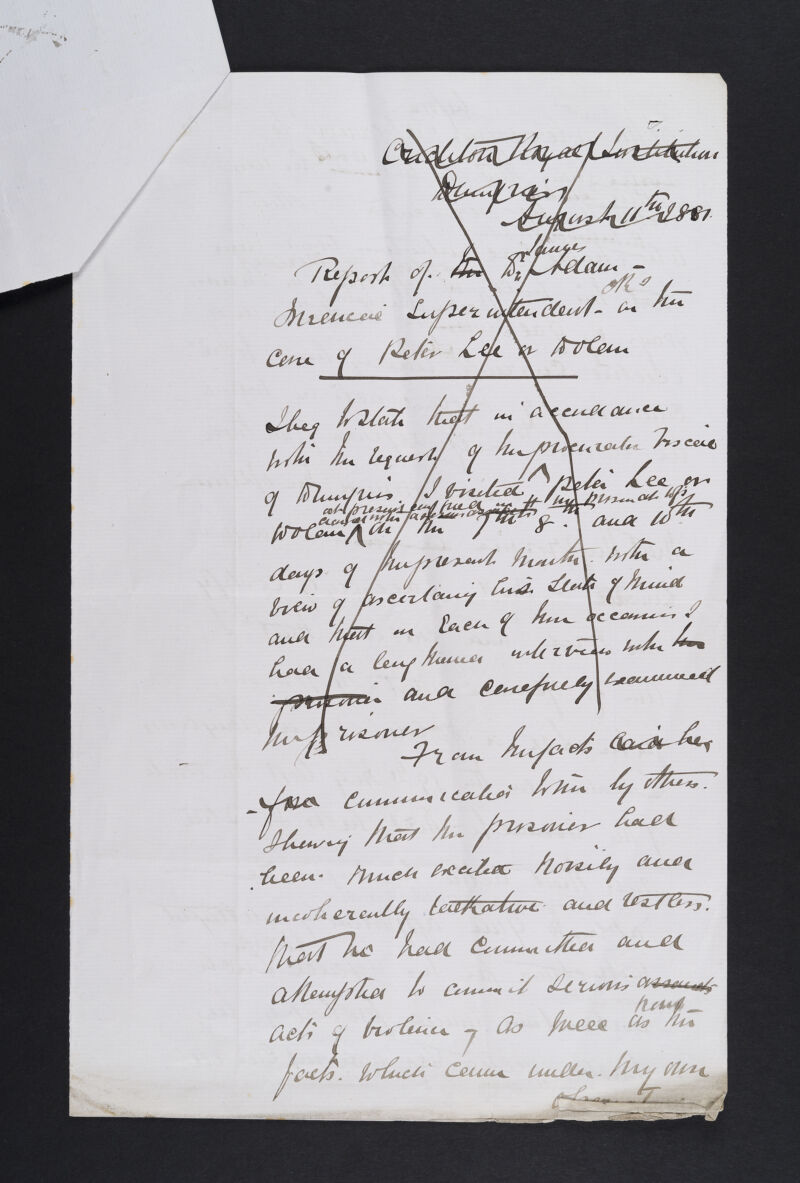 Crichton Royal Institution
Dumfries
August 11th 1881
James
Report of the Dr Adam -
Medical Superintendent - on the
case of Peter Lee or Dolan
I beg to state that in accordance
with the request of the procurator Fiscal
of Dumfries I visited Peter Lee or
at present confined in
Dolan on the 7th 8th and 10th
days of the present month with a
view of ascertaining his state of mind
and that on each of these occasions I
had a lengthened interview with the
prisoner and carefully examined
the prisoner
From the facts
communicated to me by others.
Shewing that the prisoner had
been much excited noisily and
incoherently talkative and restless.
that he had committed and
attempted to commit serious assaults
acts of violence as well as
from the
facts. which came under. my own